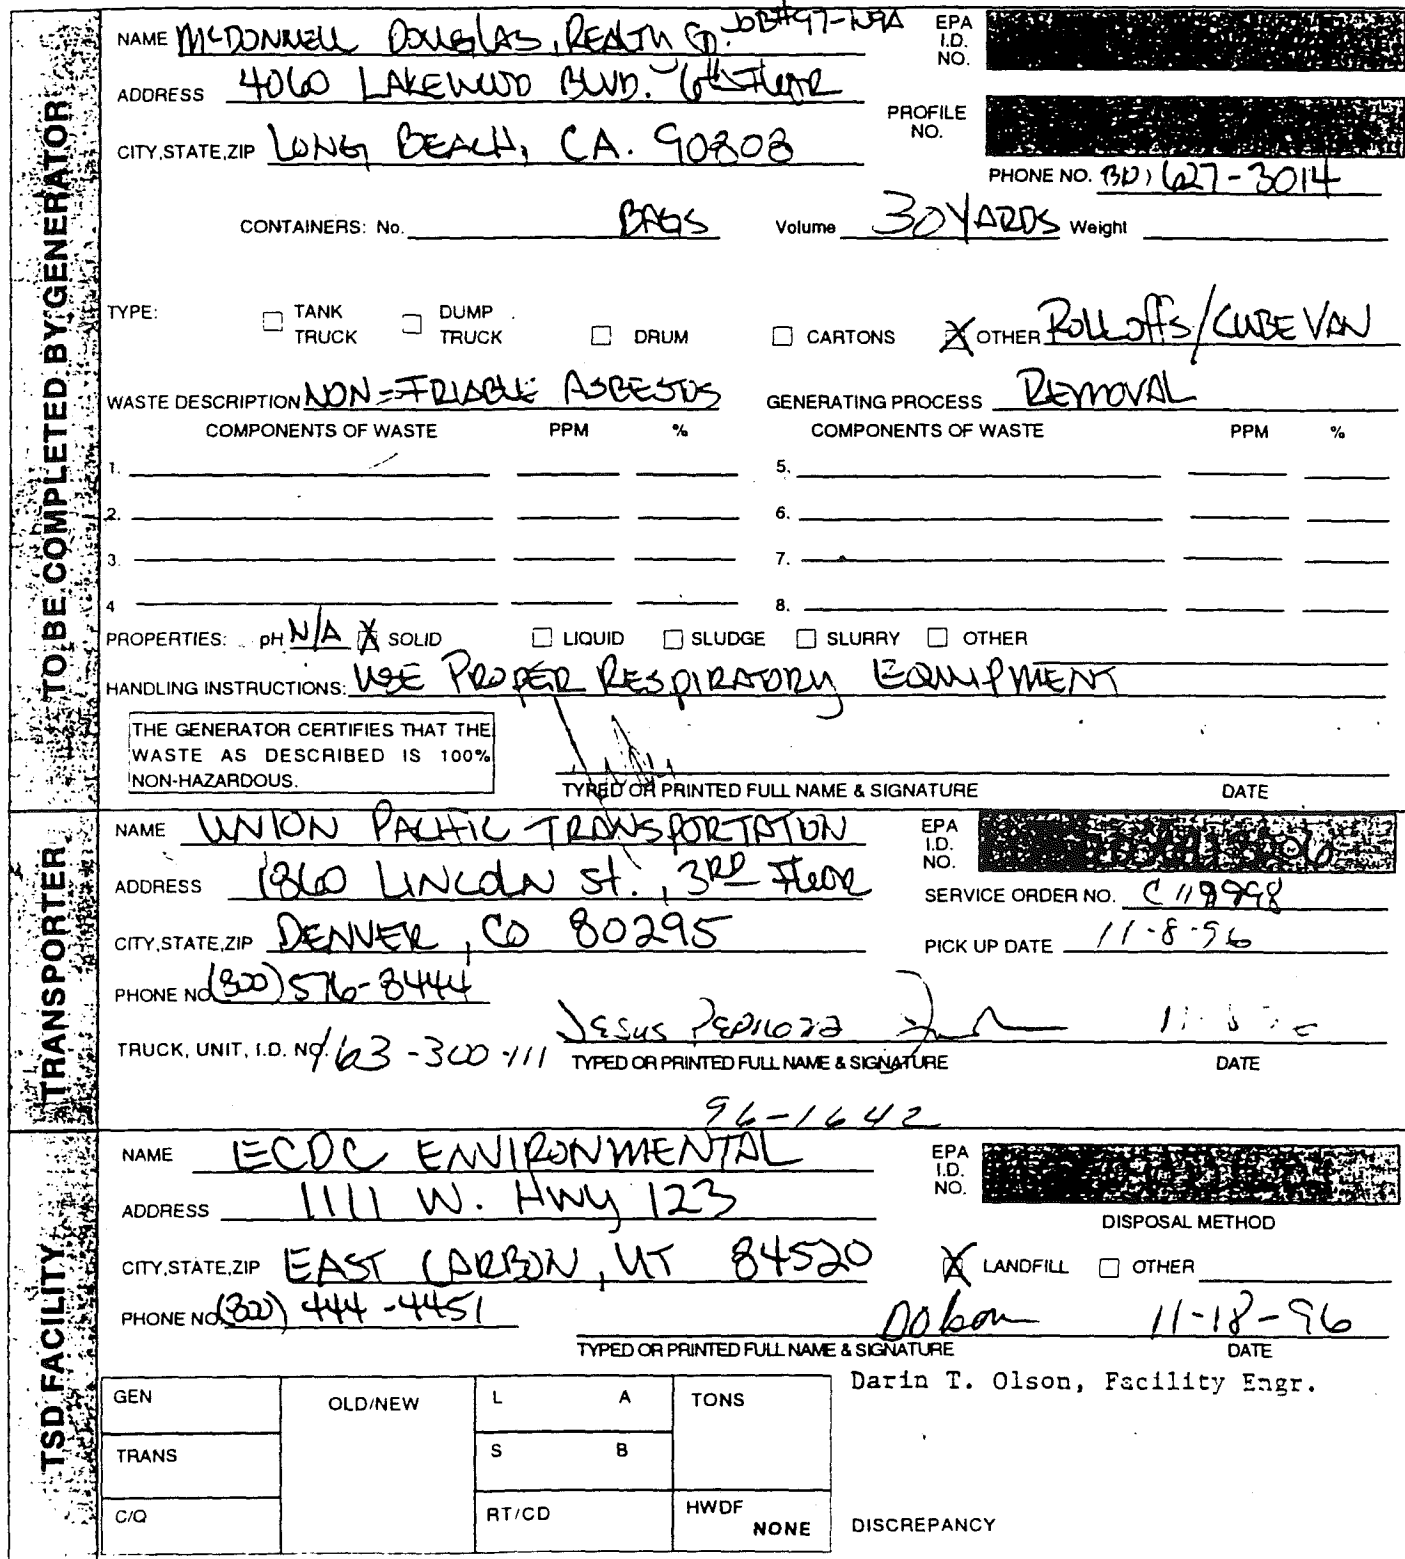 TO BE COMPLETED BY GENERATOR
NAME McDONNELL DOUGLAS, REALTY CO. JOB#97-
EPA I.D. NO.
ADDRESS 4060 LAKEWOOD BLVD. 6th FLOOR
PROFILE NO.
CITY,STATE,ZIP LONG BEACH, CA. 90808
PHONE NO. 310) 627-3014
CONTAINERS: No. BAGS Volume 30 YARDS Weight
TYPE: TANK TRUCK DUMP TRUCK DRUM CARTONS X OTHER ROLLOFFS/CUBE VAN
WASTE DESCRIPTION NON-FRIABLE ASBESTOS GENERATING PROCESS REMOVAL
COMPONENTS OF WASTE PPM % COMPONENTS OF WASTE PPM %
1. 5.
2. 6.
3. 7.
4 8.
PROPERTIES: pH N/A X SOLID LIQUID SLUDGE SLURRY OTHER
HANDLING INSTRUCTIONS: USE PROPER RESPIRATORY EQUIPMENT
THE GENERATOR CERTIFIES THAT THE
WASTE AS DESCRIBED IS 100%
NON-HAZARDOUS.
TYPED OR PRINTED FULL NAME & SIGNATURE DATE
TRANSPORTER
NAME UNION PACIFIC TRANSPORTATION
EPA I.D. NO.
ADDRESS 1860 LINCOLN St., 3RD FLOOR
SERVICE ORDER NO.
CITY,STATE,ZIP DENVER, CO 80295
PICK UP DATE 11-8-96
PHONE NO. (800) 576-8444
TRUCK, UNIT, I.D. NO. 163-300-111 Jesus
TYPED OR PRINTED FULL NAME & SIGNATURE DATE
96-1642
TSD FACILITY
NAME ECDC ENVIRONMENTAL
EPA I.D. NO.
ADDRESS 1111 W. HWY 123
DISPOSAL METHOD
CITY,STATE,ZIP EAST CARBON, UT 84520
X LANDFILL OTHER
PHONE NO. (800) 444-4451
11-18-96
TYPED OR PRINTED FULL NAME & SIGNATURE DATE
Darin T. Olson, Facility Engr.
GEN OLD/NEW L A TONS
TRANS S B
C/Q RT/CD HWDF NONE DISCREPANCY